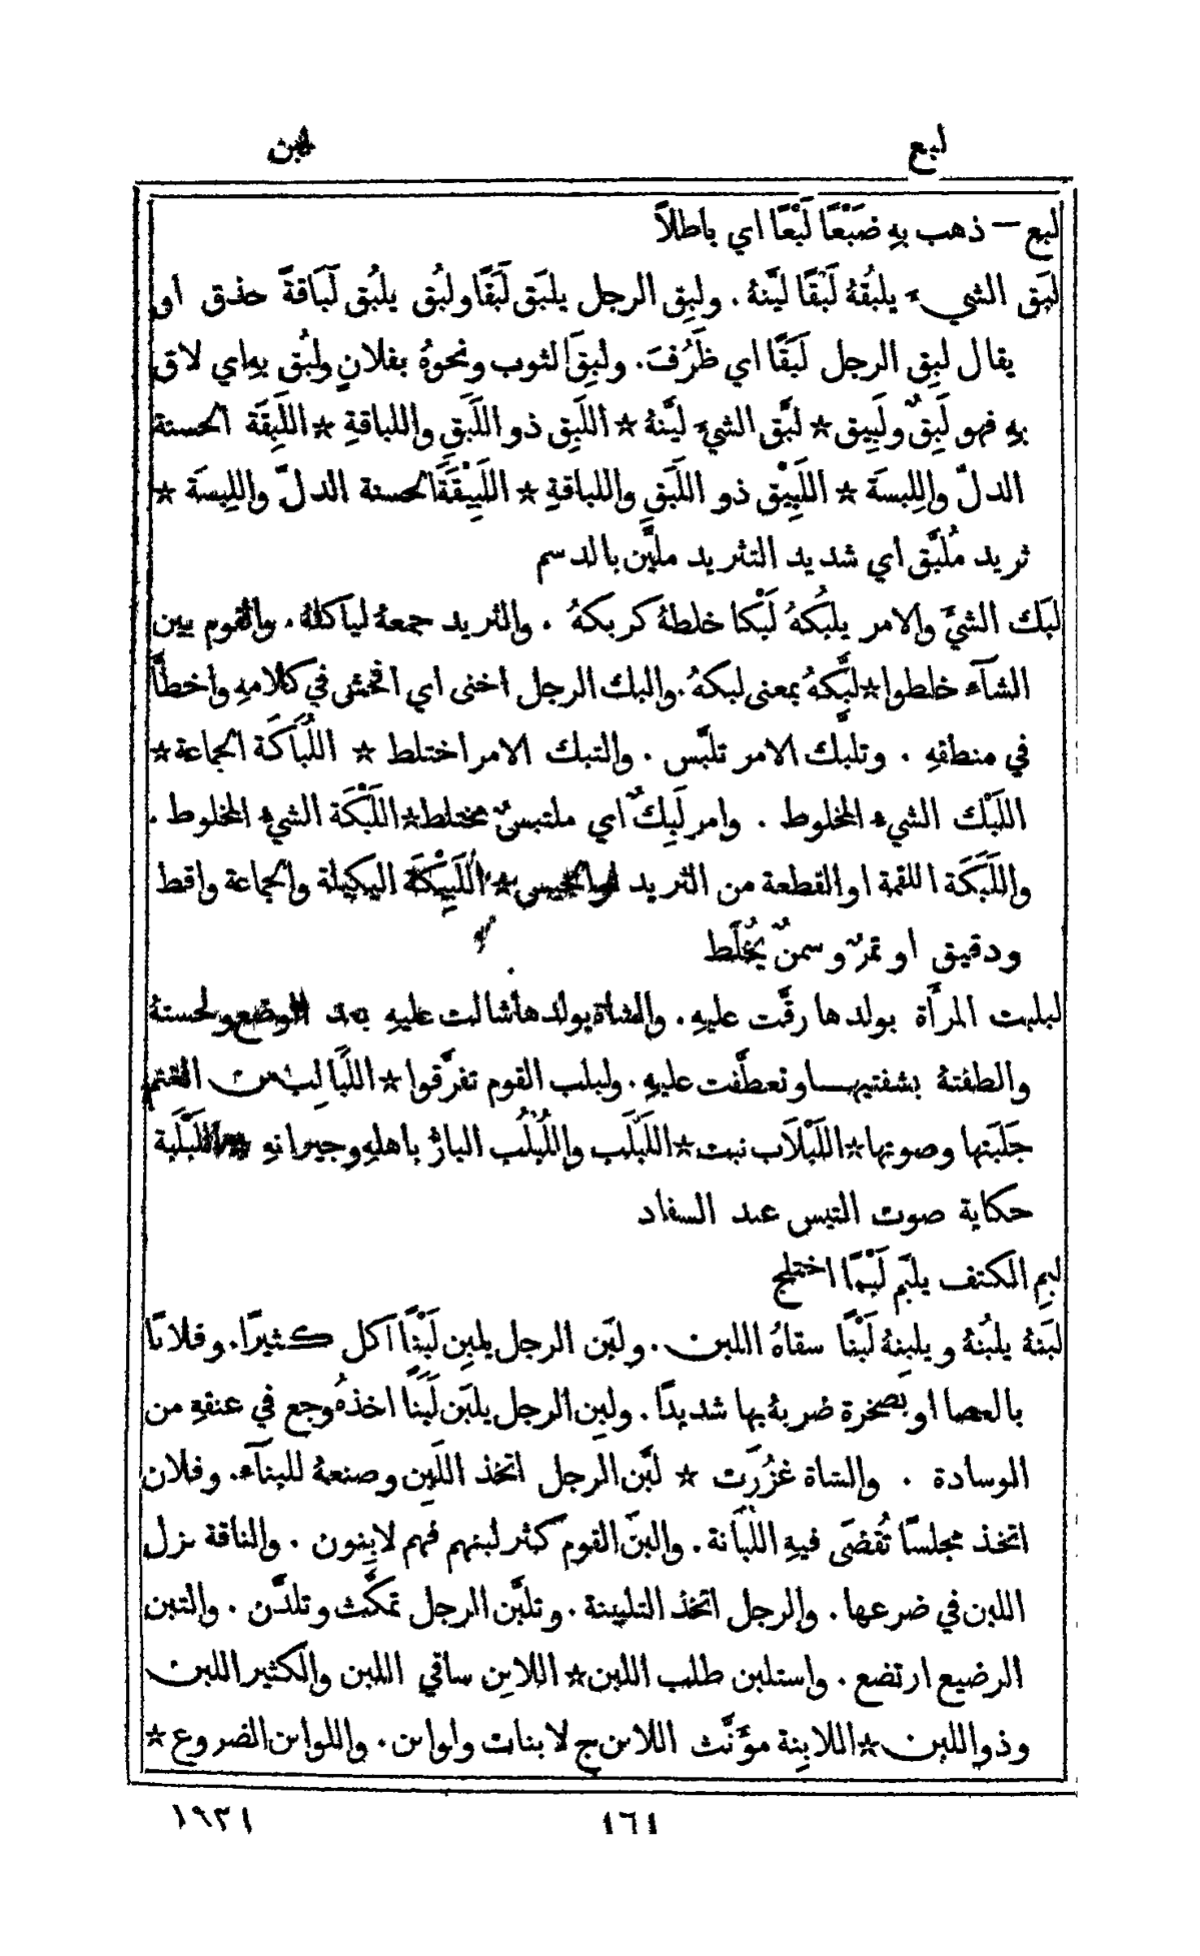 لبع
لبن
لبع — ذهب بهِ ضَبْعًا لَبْعًا اي باطلاً
لبَق الشيء يلبُقهُ لَبْقًا ليَّنهُ . ولبِق الرجل يلبَق لَبَقًا ولبُق يلبُق لَبَاقةً حذق او
يقال لبِق الرجل لَبَقًا اي ظَرُفَ . ولبِقَ الثوب ونحوهُ بفلانٍ ولبُق بهِ اي لاق
بهِ فهو لَبِقٌ ولَبِيق ☆ لبَّق الشيءَ ليَّنهُ ☆ اللَبِق ذو اللَبَقِ واللباقةِ ☆ اللَبِقَة الحسنة
الدلّ واللِبسَة ☆ اللَبِيْق ذو اللَبَقِ واللباقةِ ☆ اللَبِيْقَة الحسنة الدلّ واللِبسَة ☆
ثريد مُلَبَّق اي شديد التثريد مليَّن بالدسم
لبَك الشيَّ والامر يلبُكهُ لَبْكا خلطهُ كربكهُ . والثريد جمعهُ لياكلهُ . والقوم بين
الشآءِ خلطوا ☆ لبَّكهُ بمعنى لبكهُ . والبك الرجل اخنى اي افحش في كلامهِ واخطأَ
في منطقهِ . وتلبَّك الامر تلبَّس . والتبك الامر اختلط ☆ اللُبَاكَة الجماعة ☆
اللَبْك الشيء المخلوط . وامر لَبِكٌ اي ملتبسٌ مختلط ☆ اللَبْكَة الشيء المخلوط .
واللَبَكَة اللقمة او القطعة من الثريد او الحيس ☆ اللَبِيْكَة البكيلة والجماعة واقط
ودقيق او تمرٌ وسمنٌ يُخْلَط
لبلبت المرأَة بولدها رقَّت عليهِ . والشاة بولدها شالت عليهِ بعد الوضع ولحستهُ
والطفتهُ بشفتيهــا وتعطَّفت عليهِ . ولبلب القوم تفرَّقوا ☆ اللَبَالِب من الغنم
جَلَبَتها وصوتها ☆ اللَبْلَاب نبت ☆ اللَبْلَب واللُبْلُب البارّ باهلهِ وجيرانهِ ☆ اللَبْلَبة
حكاية صوت التيس عند السفاد
لبِم الكتف يلبَم لَبَمًا اختلج
لبَنهُ يلبُنهُ ويلبِنهُ لَبْنًا سقاهُ اللبن . ولبَن الرجل يلبِن لَبْنًا اكل كثيرًا . وفلانًا
بالعصا او بصخرة ضربهُ بها شديدًا . ولبِن الرجل يلبَن لَبَنًا اخذهُ وجع في عنقهِ من
الوسادة . والشاة غزُرَت ☆ لبَّن الرجل اتخذ اللَبِن وصنعهُ للبنآء . وفلان
اتخذ مجلسًا تُقضَى فيهِ اللُبَانة . والبَنَ القوم كثر لبنهم فهم لابِنون . والناقة نزل
اللبن في ضرعها . والرجل اتخذ التلبينة . وتلبَّن الرجل تمكَّث وتلدَّن . والتبن
الرضيع ارتضع . واستلبن طلب اللبن ☆ اللابِن ساقي اللبن والكثير اللبن
وذو اللبن ☆ اللابِنة مؤَنَّث اللابن ج لابنات ولوابن . واللوابن الضروع ☆
١٦١
١٩٣١